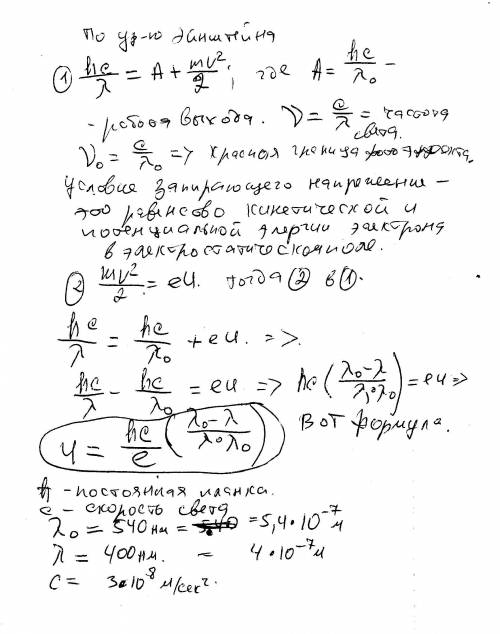 По ур-ю Эйнштейна
① hc/λ = A + mv²/2; где A = hc/λ₀ -
- работа выхода. ν = c/λ = частота света.
ν₀ = c/λ₀ => красная граница фотоэффекта.
Условие запирающего напряжения -
это равенство кинетической и
потенциальной энергии электрона
в электростатическом поле.
② mv²/2 = eu. тогда ② в ①.
hc/λ = hc/λ₀ + eu. =>.
hc/λ - hc/λ₀ = eu => hc(λ₀-λ/λ·λ₀) = eu =>
u = hc/e (λ₀-λ/λ·λ₀) Вот формула.
h - постоянная планка.
c - скорость света
λ₀ = 540 нм = = 5,4·10⁻⁷ м
λ = 400 нм. = 4·10⁻⁷ м
c = 3·10⁻⁸ м/сек².